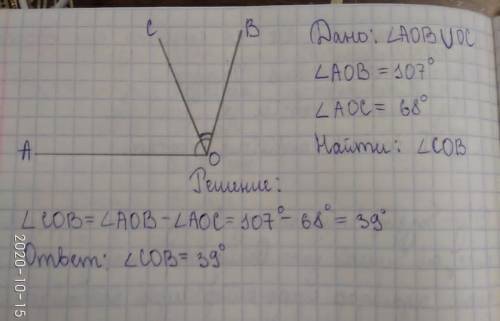 C
B
A
O
Дано: ∠AOB∪OC
∠AOB = 107°
∠AOC = 68°
Найти: ∠COB
Решение:
∠COB = ∠AOB - ∠AOC = 107° - 68° = 39°
Ответ: ∠COB = 39°
2020-10-15